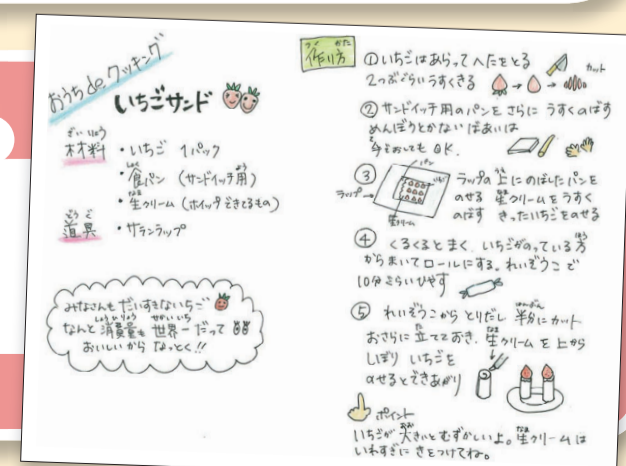 おうちdeクッキング
いちごサンド
材料 ・いちご 1パック
・食パン (サンドイッチ用)
・生クリーム (ホイップできてるもの)
道具 ・サランラップ
みなさんもだいすきないちご
なんと消費量も世界一だって
おいしいから なっとく!!
作り方
①いちごはあらってへたをとる
2つぶぐらいうすくきる
カット
②サンドイッチ用のパンを さらに うすくのばす
めんぼうとかないばあいは
手でおしても OK.
③
パン
ラップ
いちご
生クリーム
ラップの上にのばしたパンを
のせる 生クリームをうすく
のばす きったいちごをのせる
④ くるくるとまく. いちごがのっている方
からまいてロールにする. れいぞうこで
10分ぐらいひやす
⑤ れいぞうこから とりだし 半分にカット
おさらに 立てておき. 生クリームを上から
しぼり いちごを
のせるとできあがり
ポイント
いちごが大きいとむずかしいよ。生クリームは
いれすぎに きをつけてね。